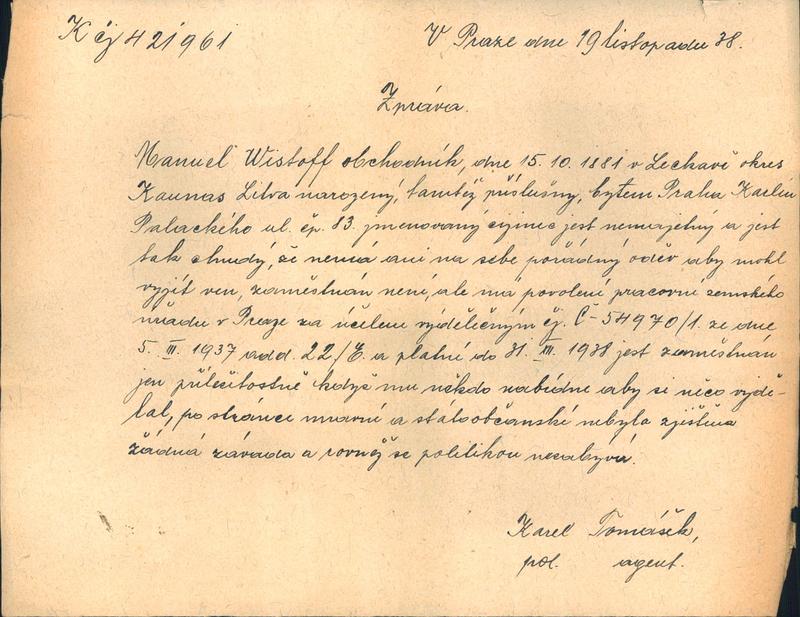 K čj 421961
V Praze dne 19 listopadu 38.
Zpráva.
Manuel Wistoff obchodník, dne 15. 10. 1881 v Leckavě okres
Kaunas Litva narozený, tamtéž příslušný, bytem Praha Karlín
Palackého ul. čp. 83. jmenovaný cizinec jest nemajetný a jest
tak chudý, že nemá ani na sebe pořádný oděv aby mohl
vyjít ven, zaměstnán není, ale má povolení pracovní zemského
úřadu v Praze za účelem výdělečným čj. Č-54970/1. ze dne
5. III. 1937 odd. 22/E. a platné do 31. III. 1938 jest zaměstnán
jen příležitostně když mu někdo nabídne aby si něco vydě-
lal, po stránce mravní a státoobčanské nebyla zjištěna
žádná závada a rovněž se politikou nezabývá.
Karel Tomášek,
pol. agent.